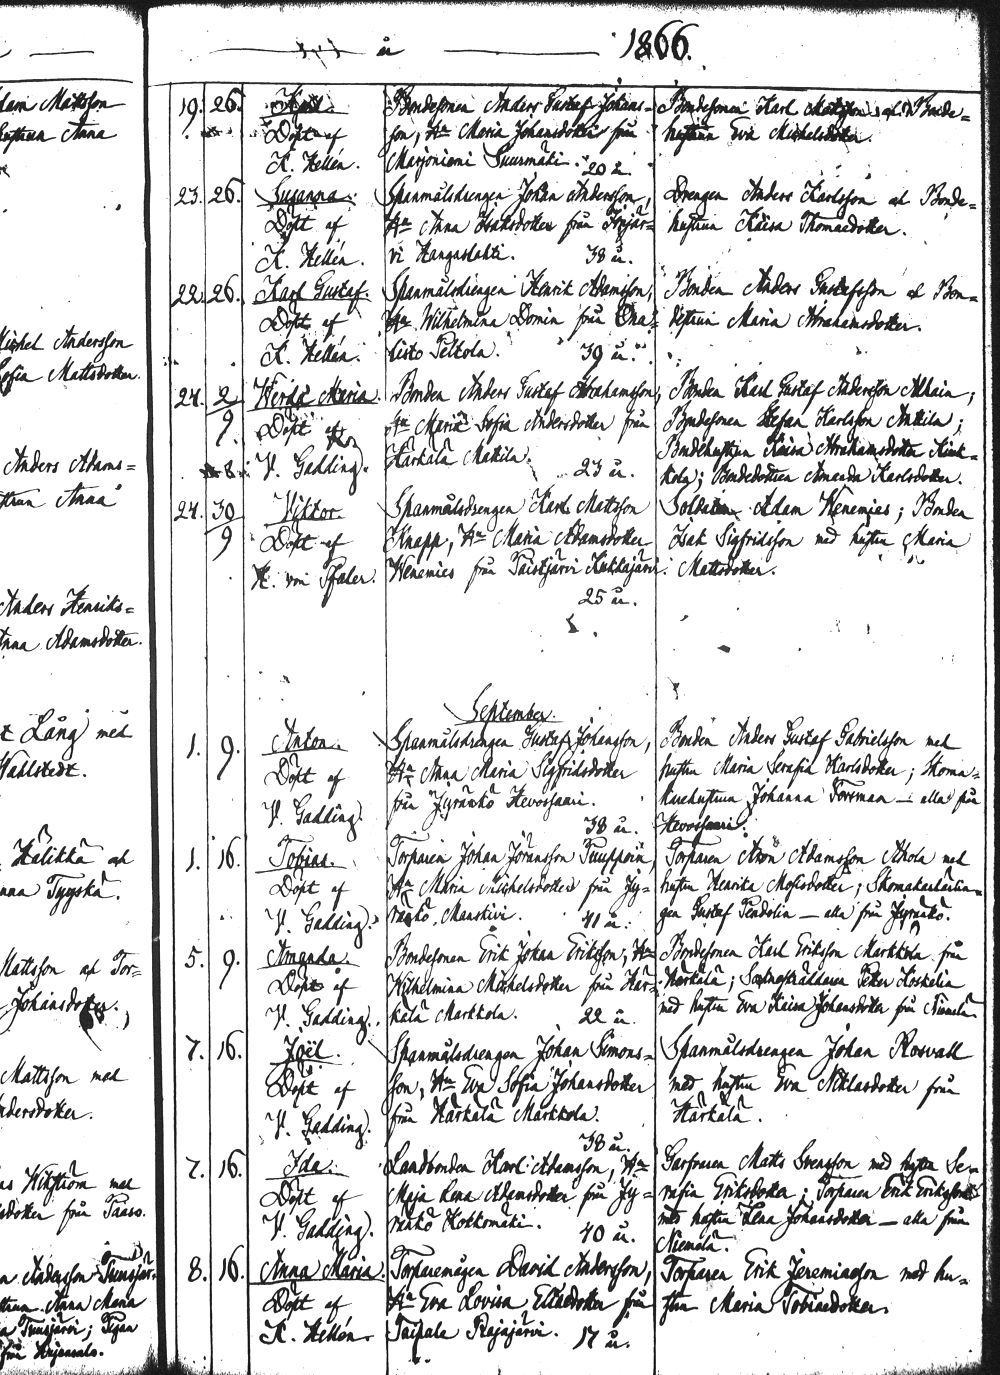 år 1866.
dam Mattsson
hustrun Anna
Michel Andersson
Sofia Mattsdotter.
Anders Adams=
hustrun Anna
Anders Henriks=
Anna Adamsdotter.
Lång med
Wahlstedt.
Hälikkä och
Tyyskä.
Mattsson och Tor=
Johansdotter.
Mattsson med
Andersdotter.
Wikström med
från Paaso.
Andersson Tuusjär=
hustrun Anna Maria
Tuusjärvi; Pigan
från Hirjensalo.
19. 26. Karl.
Döpt af
K. Hellén.
Bondesonen Anders Gustaf Johans=
son, Hu Maria Johansdotter från
Marjoniemi Suurmäki. 20 å.
Bondesonen Karl Mattsson och Bonde=
hustrun Eva Michelsdotter.
23. 26. Susanna.
Döpt af
K. Hellén.
Spanmålsdrengen Johan Andersson,
Hu Anna Isaksdotter från Irjär=
vi Kangaslahti. 38 å.
Drengen Anders Karlsson och Bonde=
hustrun Kaisa Thomaedotter.
22. 26. Karl Gustaf.
Döpt af
K. Hellén.
Spanmålsdrengen Henrik Adamsson,
Hu Wilhelmina Domin från Ona=
listo Pelkola. 39 år.
Bonden Anders Gustafsson och Bon=
dehustrun Maria Abrahamsdotter.
24. 2/9 Werda Maria.
Döpt af
V. Gadding.
Bonden Anders Gustaf Abrahamsson,
Hu Maria Sofia Andersdotter från
Härkälä Mattila. 23 år.
Bonden Karl Gustaf Andersson Alhain;
Bondesonen Stefan Karlsson Anttila;
Bondehustrun Kaisa Abrahamsdotter Kirk=
kola; Bondedottren Amanda Karlsdotter.
24. 30/9 Viktor.
Döpt af
H. von Pfaler.
Spanmålsdrengen Karl Mattsson
Knapp, Hu Maria Adamsdotter
Wenemies från Taistjärvi Kukkajärvi.
25 år.
Soldaten Adam Wenemies; Bonden
Isak Sigfridsson med hustru Maria
Mattsdotter.
September.
1. 9. Anton.
Döpt af
V. Gadding.
Spanmålsdrengen Gustaf Johansson,
Hu Anna Maria Sigfridsdotter
från Jyränkö Hevossaari.
38 år.
Bonden Anders Gustaf Gabrielsson med
hustru Maria Serafia Karlsdotter; Skoma=
karehustrun Johanna Forsman — alla från
Hevossaari.
1. 16. Tobias.
Döpt af
V. Gadding.
Torparen Johan Jöransson Puuppoin,
Hu Maria Michelsdotter från Jy=
ränkö Manskivi. 41 år.
Torparen Aron Adamsson Ahola med
hustru Henrika Mosisdotter; Skomakarlärlin=
gen Gustaf Pendolin — alla från Jyränkö.
5. 9. Amanda.
Döpt af
V. Gadding.
Bondesonen Erik Johan Eriksson, Hu
Wilhelmina Michelsdotter från Här=
kälä Markkola. 22 år.
Bondesonen Karl Eriksson Markkola från
Härkälä; Sockneskräddaren Petter Koskelin
med hustru Eva Kaisa Johansdotter från Niemelä.
7. 16. Joël.
Döpt af
V. Gadding.
Spanmålsdrengen Johan Simons=
son, Hu Eva Sofia Johansdotter
från Härkälä Markkola.
38 år.
Spanmålsdrengen Johan Rosvall
med hustru Eva Niklasdotter från
Härkälä.
7. 16. Ida.
Döpt af
V. Gadding.
Landbonden Karl Adamsson, Hu
Maja Lena Adamsdotter från Jy=
ränkö Kokkomäki. 40 år.
Garfvaren Matts Svensson med hustru Se=
rafia Eriksdotter; Torparen Erik Eriksson
med hustru Lena Johansdotter — alla från
Niemelä.
8. 16. Anna Maria.
Döpt af
K. Hellén.
Torparemågen David Andersson,
Hu Eva Lovisa Eliaedotter från
Taipale Rajajärvi. 17 år.
Torparen Erik Jeremiasson med hu=
stru Maria Tobiaedotter.